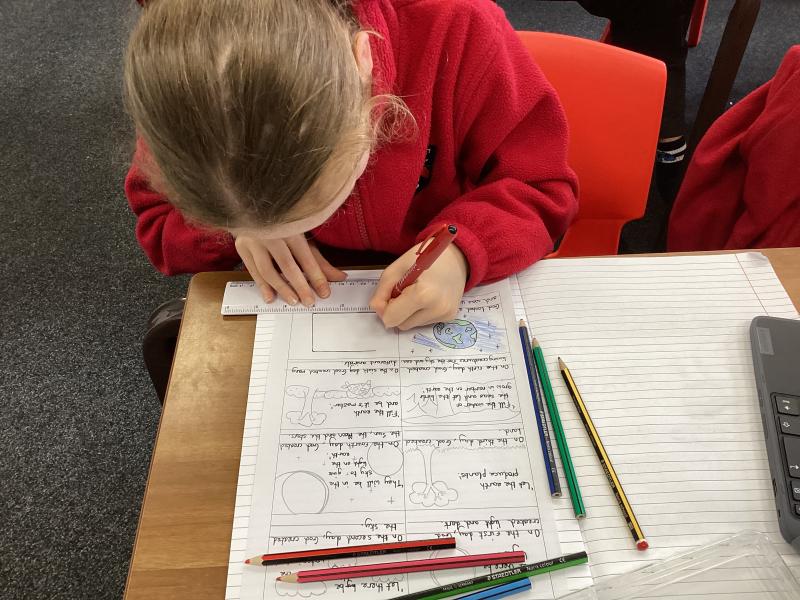 'Let there be
On the first day, God
created light and dark.
On the second day, God created
the sky.
'Let the earth
produce plants.'
They will be in the
sky to give
light on the
earth.'
On the third day, God created
land.
On the fourth day, God created
the Sun, the Moon and the stars.
'Fill the water of
the seas and let the birds
grow in number on the earth.'
'Fill the earth
and be it's master.'
day, God created
living creatures for the sky and sea.
On the sixth day God created many
different animals.
God looked
and saw
STAEDTLER